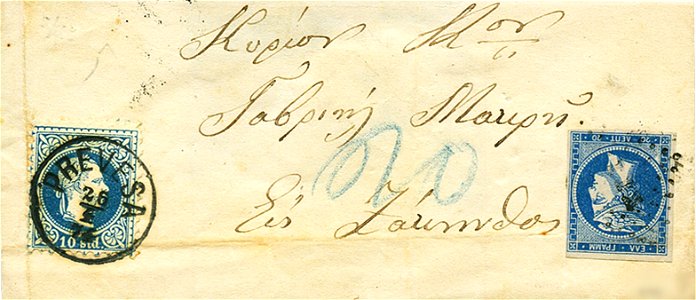 Κυρίον Κον
Γαβριήλ Μαυρη.
20
Εις Ζάκυνθος
PREVESA
26
10 sld
20 ΛΕΠΤ. 20
ΕΛΛ ΓΡΑΜΜ